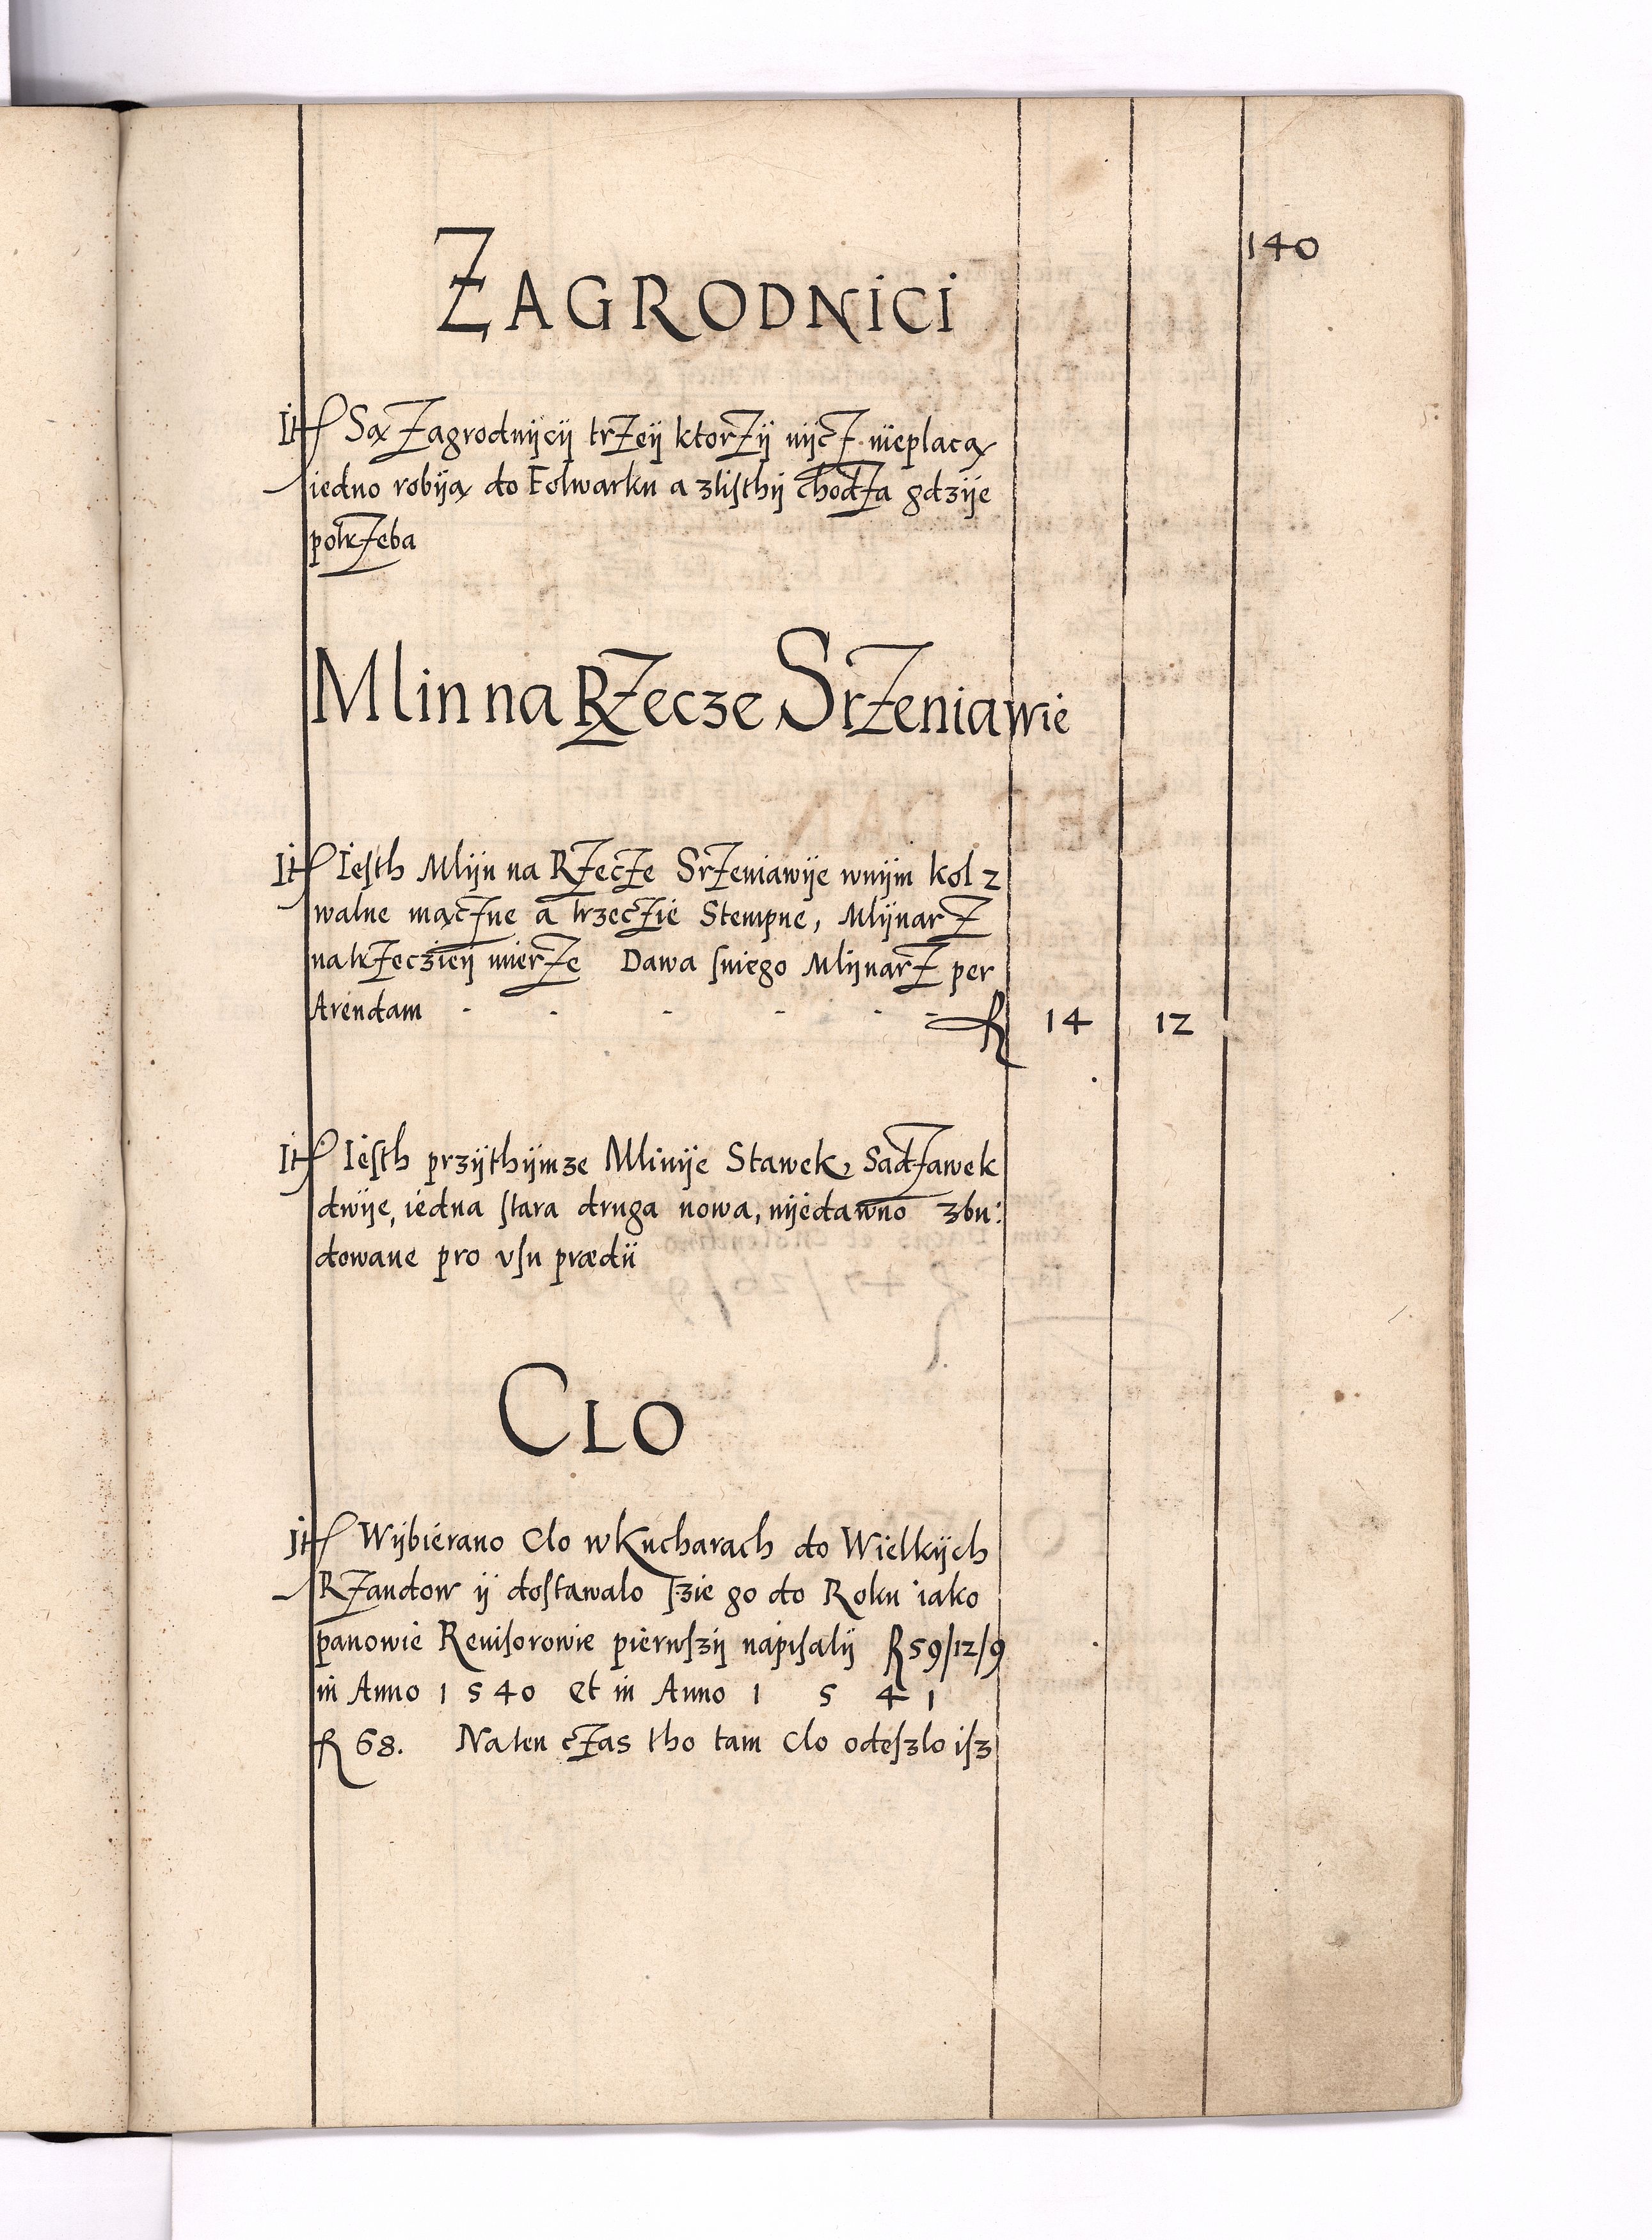 140
ZAGRODNICI
It Są Zagrodnÿcÿ trZeÿ ktorZÿ nÿcZ nieplacą
iedno robÿą do Folwarku a zlisthÿ chodZa gdzÿe
potrZeba
Mlin na RZecze SrZeniawie
It Iesth Mlÿn na RZecZe SrZeniawÿe wnÿm kol 2
walne mącZne a trzecZie Stempne, MlÿnarZ
natrZeczieÿ mierZe Dawa sniego MlÿnarZ per
Arendam - - - - - - R 14 12
It Iesth przÿthÿmze Mlinÿe Stawek, SadZawek
dwÿe, iedna stara druga nowa, nÿedawno zbu:
dowane pro vsu prædii
CLO
It Wÿbierano Clo wKucharach do Wielkÿch
RZandow ÿ dostawalo szie go do Roku iako
panowie Reuisorowie pierwszÿ napisalÿ R 59/12/9
in Anno 1540 et in Anno 1 5 4 1
R 68. Naten cZas tho tam Clo odeszlo isz